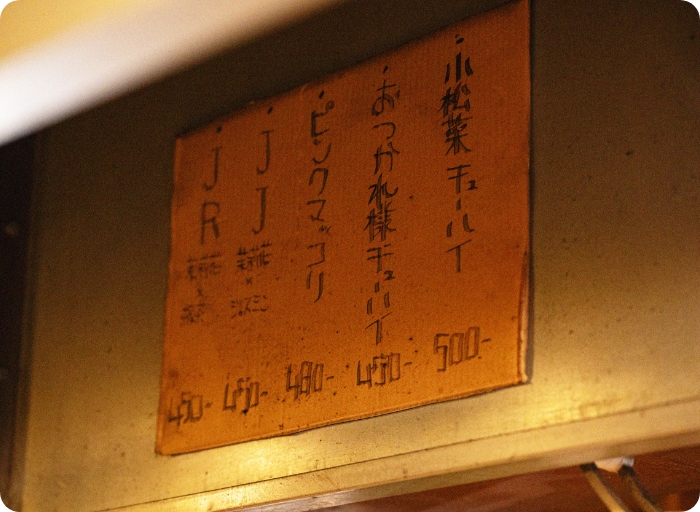 ・小松菜チューハイ 500-
・おつかれ様チューハイ 450-
・ピンクマッコリ 480-
・JJ 茉莉花×ジャスミン 450-
・JR 茉莉花 450-